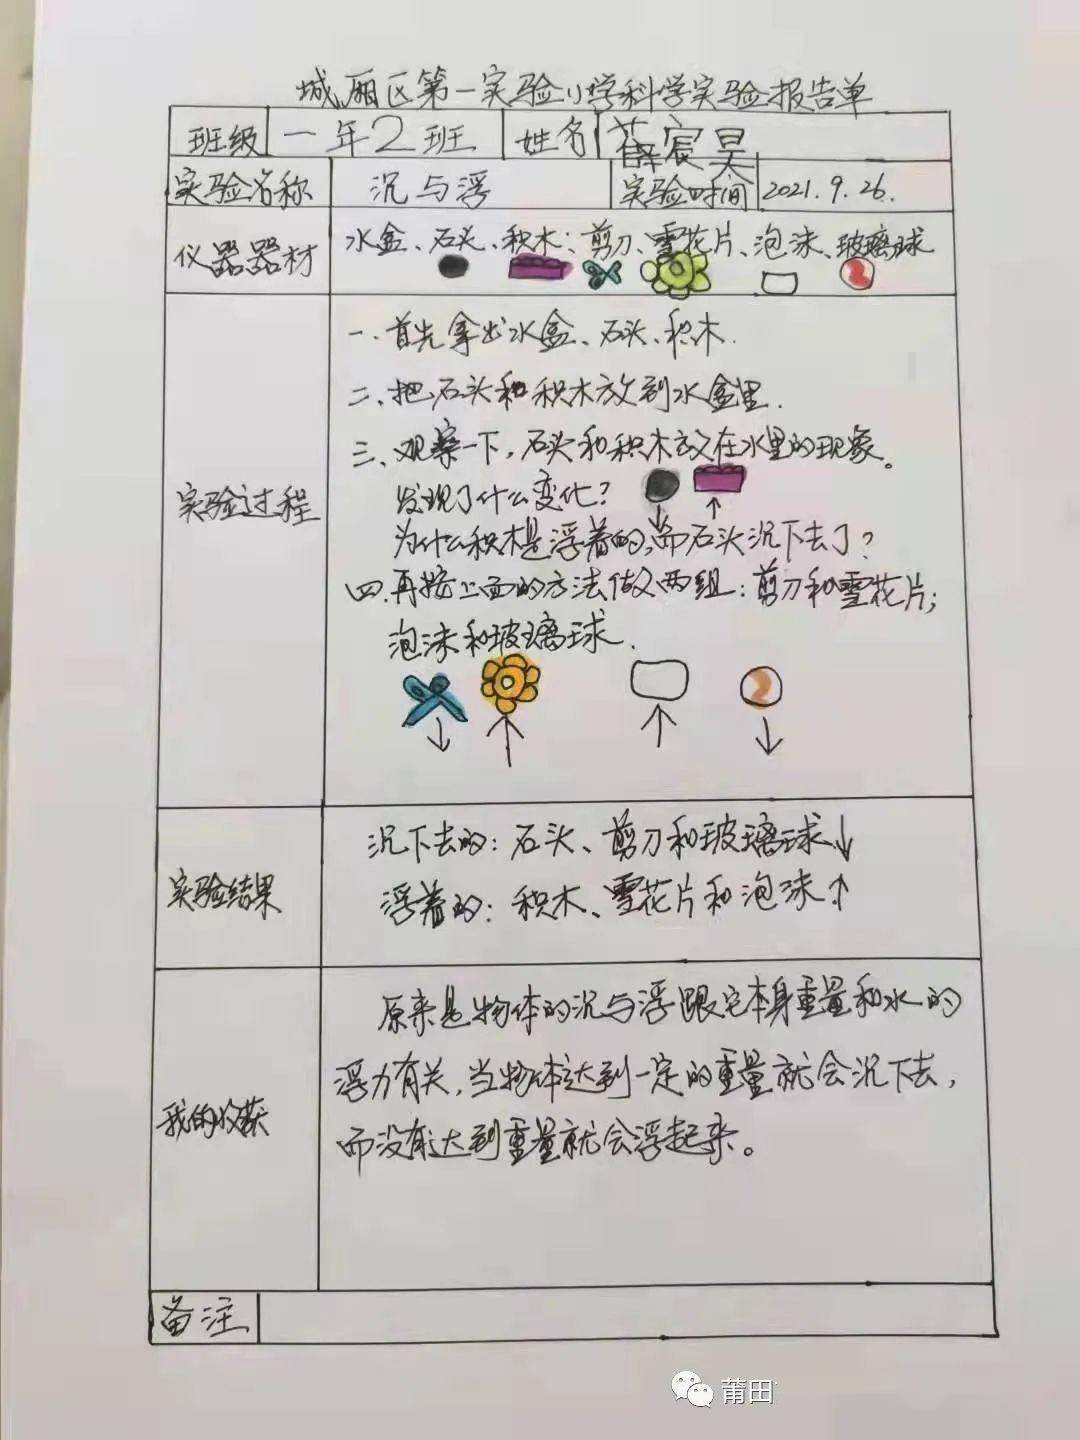 城厢区第一实验小学科学实验报告单
班级 一年2班 姓名 薛宸昊
实验名称 沉与浮 实验时间 2021.9.26.
仪器器材 水盒、石头、积木、剪刀、雪花片、泡沫、玻璃球
2
实验过程
一、首先拿出水盒、石头、积木.
二、把石头和积木放到水盒里.
三、观察一下,石头和积木放在水里的现象。
发现了什么变化?
为什么积木是浮着的,而石头沉下去了?
四、再按上面的方法做两组:剪刀和雪花片;
泡沫和玻璃球.
2
实验结果
沉下去的:石头、剪刀和玻璃球↓
浮着的:积木、雪花片和泡沫↑
我的收获
原来是物体的沉与浮跟它本身重量和水的
浮力有关,当物体达到一定的重量就会沉下去,
而没有达到重量就会浮起来。
备注
莆田